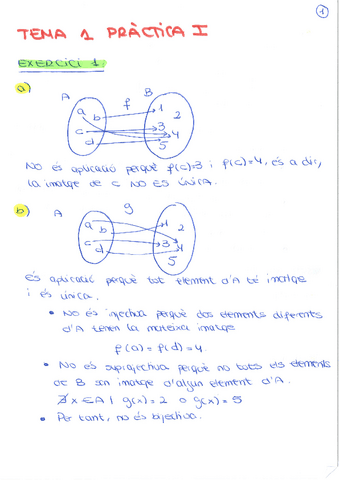 1
TEMA 1 PRÀCTICA I
EXERCICI 1.
a)
A f B
a b c d
1 2 3 4 5
NO és aplicació perquè f(c)=3 i f(c)=4, és a dir,
la imatge de c NO ES ÚNICA.
b)
A g
a b c d
1 2 3 4 5
és aplicació perquè tot element d'A té imatge
i és única.
• No és injectiva perquè dos elements diferents
d'A tenen la mateixa imatge
f(a) = f(d) = 4
• No és suprajectiva perquè no tots els elements
de B són imatge d'algun element d'A.
∄ x ∈ A | g(x) = 2 o g(x) = 5
• Per tant, no és bijectiva.